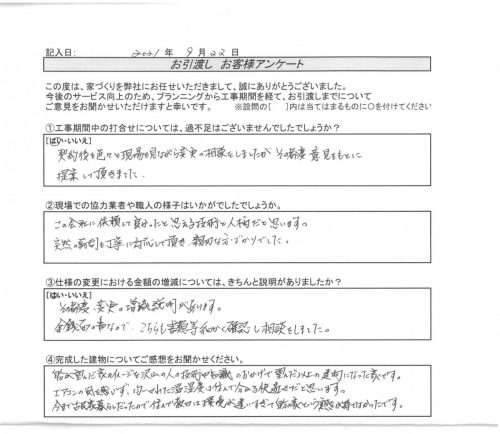 記入日: 2021年 9月22日
お引渡し お客様アンケート
この度は、家づくりを弊社にお任せいただきまして、誠にありがとうございました。
今後のサービス向上のため、プランニングから工事期間を経て、お引渡しまでについて
ご意見をお聞かせいただけますと幸いです。 ※設問の[ ]内は当てはまるものに○を付けてください
①工事期間中の打合せについては、過不足はございませんでしたでしょうか?
[はい・いいえ]
契約後も色々と現場を見ながら変更の相談をしましたが その都度意見をもとに
提案して頂きました.
②現場での協力業者や職人の様子はいかがでしたでしょうか。
この会社に依頼して良かったと思える技術と人柄だと思います。
突然の訪問も丁寧に対応して頂き、親切な方ばかりでした。
③仕様の変更における金額の増減については、きちんと説明がありましたか?
[はい・いいえ]
その都度、変更、増減説明があります。
金銭面の事なので、こちらも書類等細かく確認し相談をしました。
④完成した建物についてご感想をお聞かせください。
望んだ家のイメージを沢山の人の技術や知識のおかげで望んだ以上の建町になった家です。
エアコンの風を感じず、統一された温湿度は住んで分かる快適さだと思います。
今まで古民家暮らしだったので住んで数日は環境が違いすぎて我が家という実感が持てなかったです。